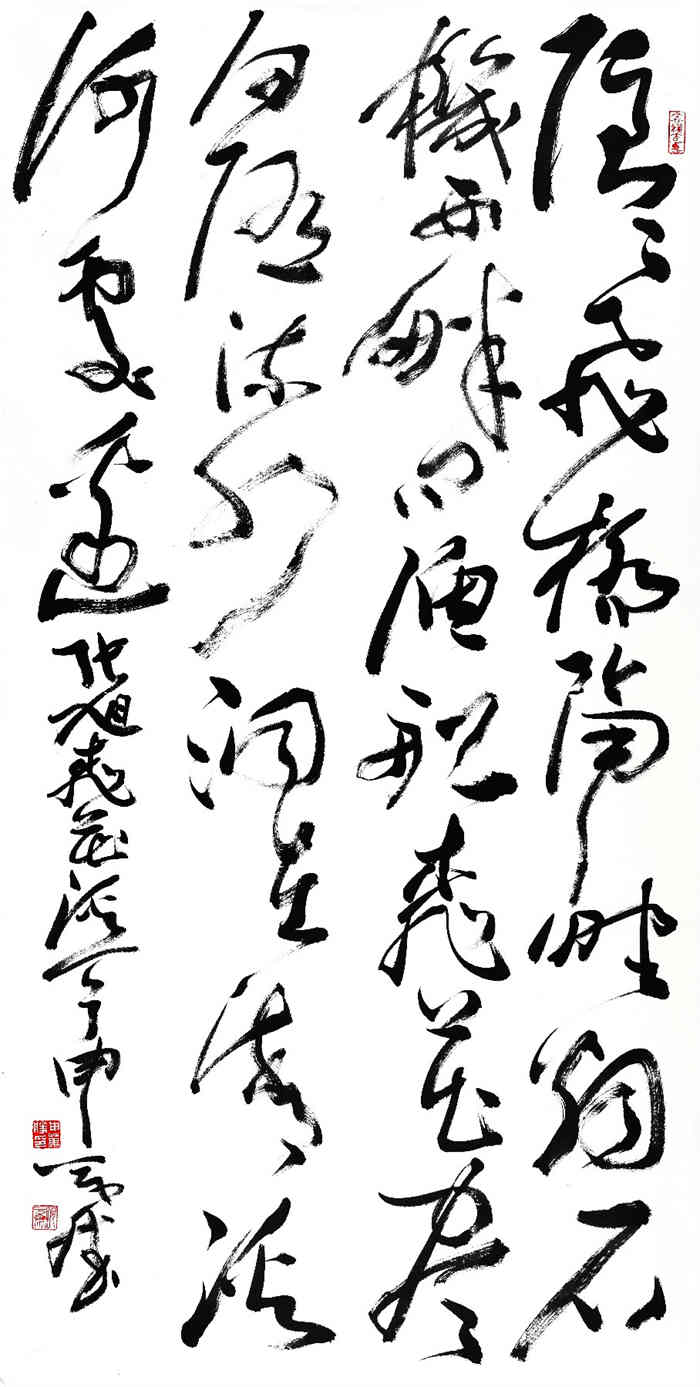 隱〻飛橋隔野烟石
磯西畔問漁船桃花盡
日隨流水洞在清溪
何處邊張旭桃花溪